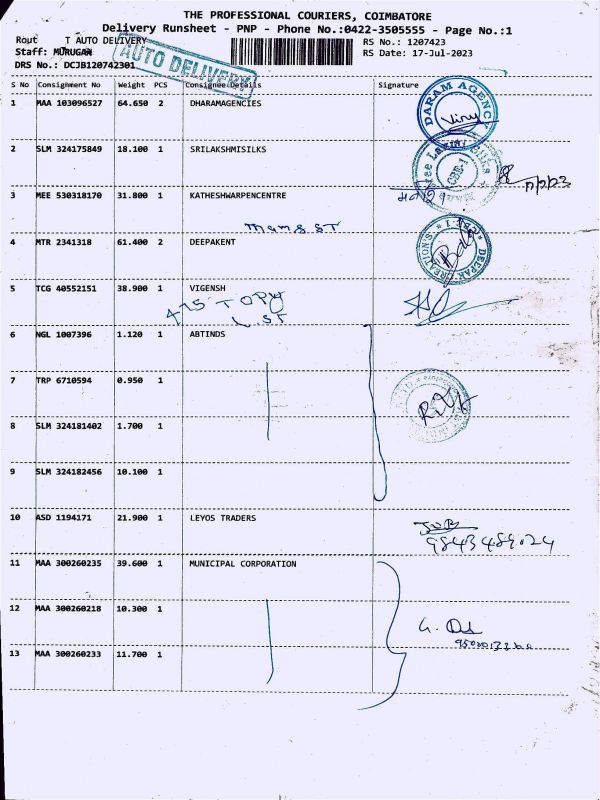 THE PROFESSIONAL COURIERS, COIMBATORE
Delivery Runsheet - PNP - Phone No.:0422-3505555 - Page No.:1
Rout T AUTO DELIVERY RS No.: 1207423
Staff: MURUGAN RS Date: 17-Jul-2023
DRS No.: DCJB120742301
AUTO DELIVERY
S No Consignment No Weight PCS Consignee Details Signature
1 MAA 103096527 64.650 2 DHARAMAGENCIES
DARAM AGENC
2 SLM 324175849 18.100 1 SRILAKSHMISILKS
3 MEE 530318170 31.800 1 KATHESHWARPENCENTRE
4 MTR 2341318 61.400 2 DEEPAKENT
DEEPAK CREATION'S
5 TCG 40552151 38.900 1 VIGENSH
6 NGL 1007396 1.120 1 ABTINDS
7 TRP 6710594 0.950 1
8 SLM 324181402 1.700 1
9 SLM 324182456 10.100 1
10 ASD 1194171 21.900 1 LEYOS TRADERS
9843489024
11 MAA 300260235 39.600 1 MUNICIPAL CORPORATION
12 MAA 300260218 10.300 1
13 MAA 300260233 11.700 1